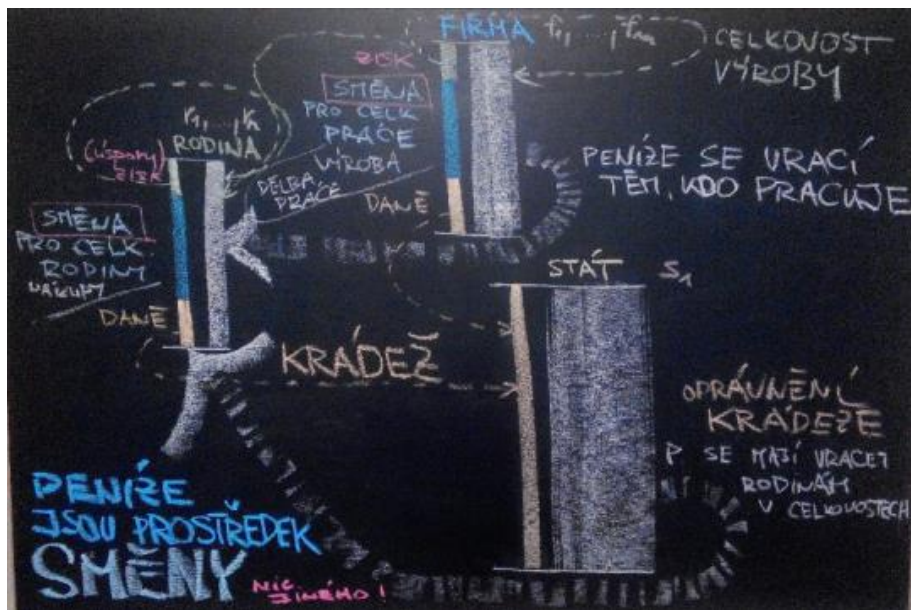 FIRMA f1, ..., fm
CELKOVOST
VÝROBY
ZISK
SMĚNA
PRO CELK
PRÁCE
VÝROBA
DĚLBA
PRÁCE
DANĚ
PENÍZE SE VRACÍ
TĚM, KDO PRACUJE
r1, ..., rn
RODINA
(úspory)
ZISK
SMĚNA
PRO CELK
RODINY
NÁKUPY
DANĚ
STÁT S1
KRÁDEŽ
OPRÁVNĚNÍ
KRÁDEŽE
P SE MAJÍ VRACET
RODINÁM
V CELKOVOSTECH
PENÍZE
JSOU PROSTŘEDEK
SMĚNY
NIC
JINÉHO!